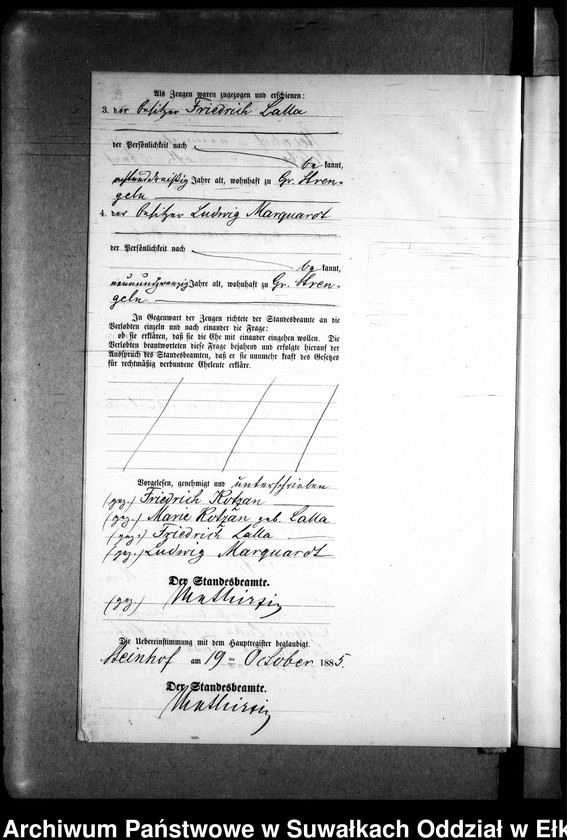 Als Zeugen waren zugezogen und erschienen:
3. der Besitzer Friedrich Lalla
der Persönlichkeit nach
be kannt,
Jahre alt, wohnhaft zu Gr. Stren-
geln
4. der Besitzer Ludwig Marquardt
der Persönlichkeit nach
be kannt,
neunundzwanzig Jahre alt, wohnhaft zu Gr. Stren-
geln
In Gegenwart der Zeugen richtete der Standesbeamte an die
Verlobten einzeln und nach einander die Frage:
ob sie erklären, daß sie die Ehe mit einander eingehen wollen. Die
Verlobten beantworteten diese Frage bejahend und erfolgte hierauf der
Ausspruch des Standesbeamten, daß er sie nunmehr kraft des Gesetzes
für rechtmäßig verbundene Eheleute erkläre.
Vorgelesen, genehmigt und unterschrieben
(gez.) Friedrich Rotzan
(gez.) Marie Rotzan geb. Lalla
(gez.) Friedrich Lalla
(gez.) Ludwig Marquardt
Der Standesbeamte.
(gez.)
Die Uebereinstimmung mit dem Hauptregister beglaubigt.
Steinhof am 19 ten October 1885.
Der Standesbeamte.
Archiwum Państwowe w Suwałkach Oddział w Ełk